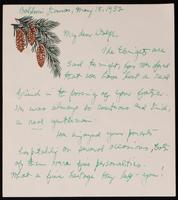 Baldwin, Kansas, May 18, 1952
My dear Ralph,
The Ebrights are
sad to-night, for we know
that we have lost a real
friend in the passing of your father.
He was always so courteous and kind
a real gentleman.
We enjoyed your parents'
hospitality on several occasions, both
of them were fine personalities.
What a fine heritage they left - you!